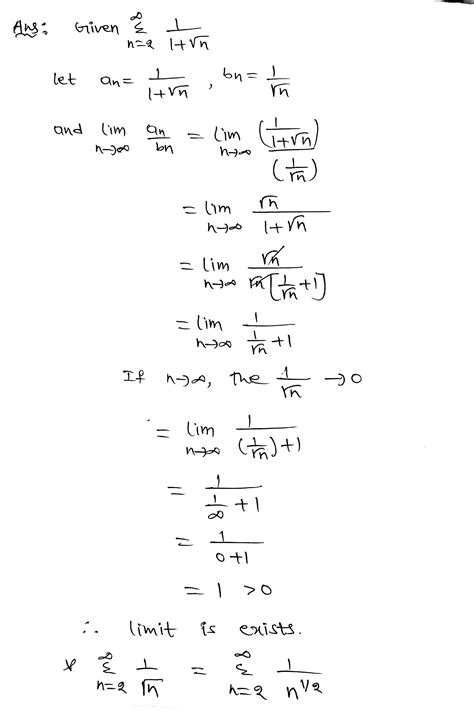 Ans: Given ∞Σn=2 1/(1+√n)
let an = 1/(1+√n) , bn = 1/√n
and lim n→∞ an/bn = lim n→∞ (1/(1+√n))/(1/√n)
= lim n→∞ √n/(1+√n)
= lim n→∞ √n/(√n[1/√n +1])
= lim n→∞ 1/(1/√n +1)
If n→∞, the 1/√n →0
= lim n→∞ 1/((1/√n)+1)
= 1/(1/∞ +1)
= 1/(0+1)
= 1 >0
∴ limit is exists.
∞Σn=2 1/√n = ∞Σn=2 1/n^1/2